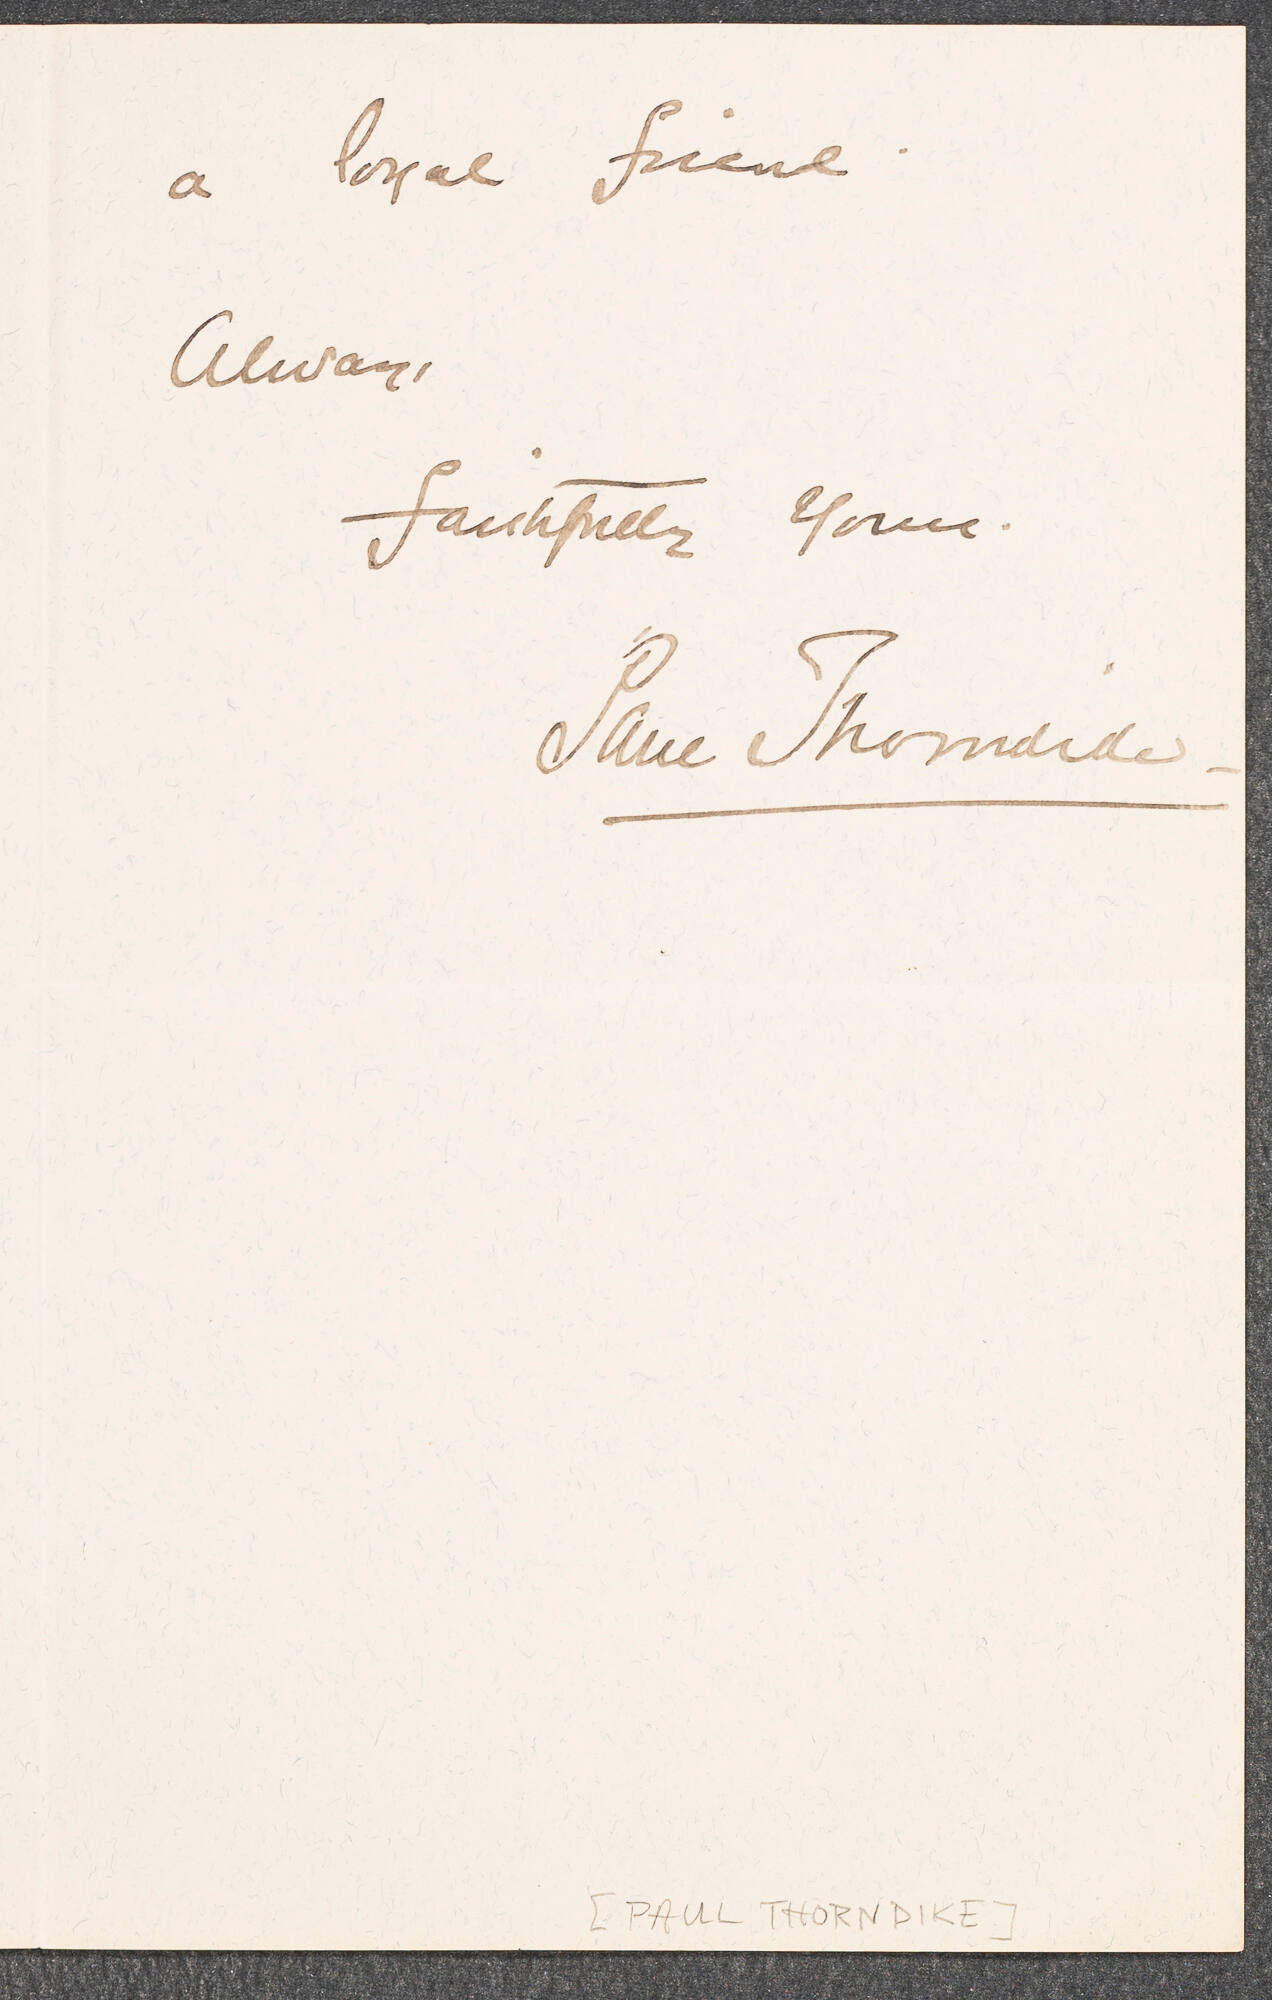 a loyal friend.
Always
faithfully yours.
Paul Thorndike
[PAUL THORNDIKE]